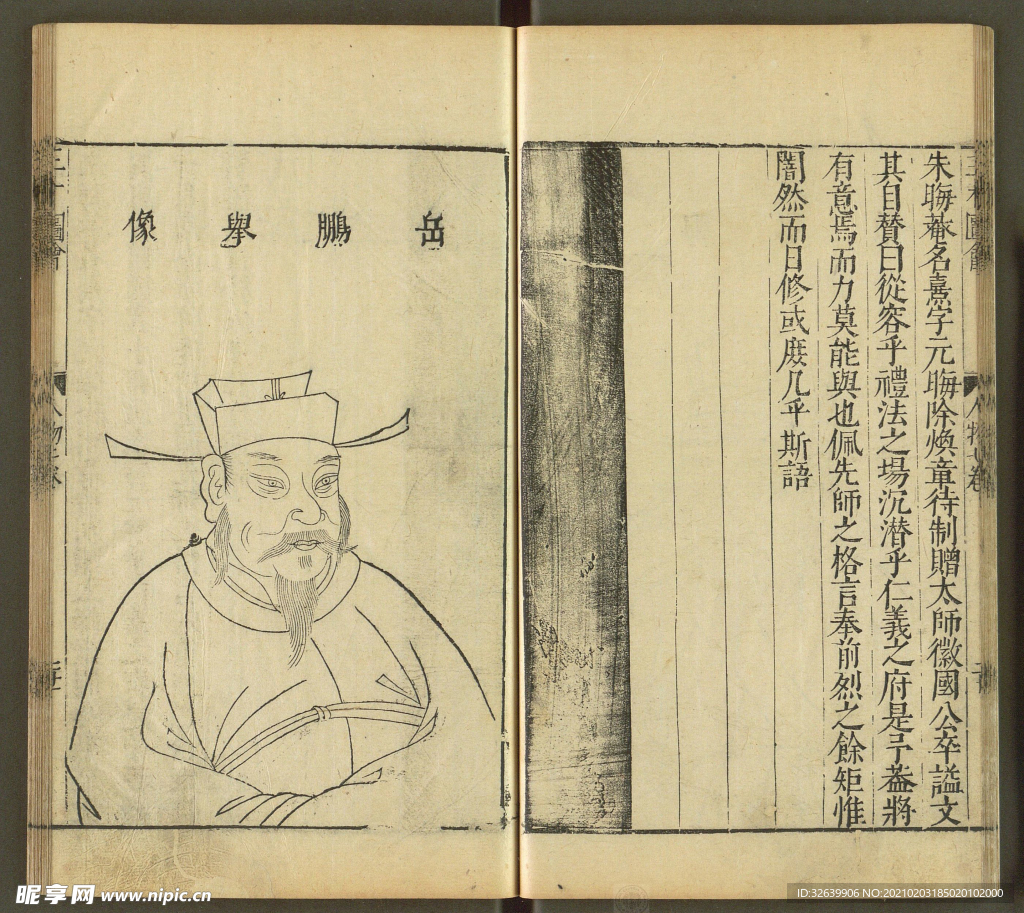 朱晦菴名熹字元晦除煥章待制贈太師徽國公卒謚文
其自贊曰從容乎禮法之場沉潜乎仁義之府是予葢將
有意焉而力莫能與也佩先師之格言奉前烈之餘矩惟
闇然而日修或庻几乎斯語
岳鵬舉像
三才圖會
人物七卷
昵享网 www.nipic.cn
ID:32639906 NO:20210203185020102000